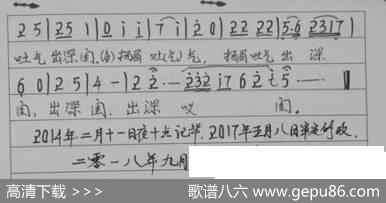 2 5 | 2 5 1 | 0 i i | 7 i | 2 0 | 22 22 | 5·6 2317 |
吐气 出深闺.(合)扬眉 吐(气)气, 扬眉吐气 出 深
6 0 | 2 5 | 4 - | 2 2·- 232 i7 6 2 i 5 ······
闺, 出深 闺. 出深 闺。
2014年二月十一日夜十点记毕. 2017年五月八日审定修改.
二零一八年九月
高清下载 >>>
歌谱八六 www.gepu86.com